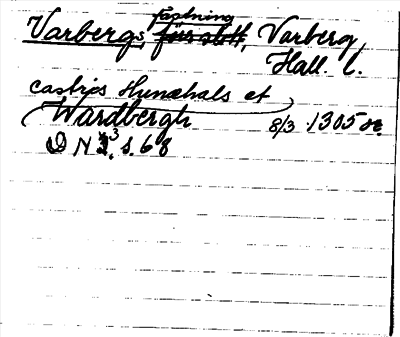 Fästning
Varbergs, Varberg,
Hall. l.
castris Hunæhals et
Wardbergh 8/3 1305 or.
D N 3, s. 68